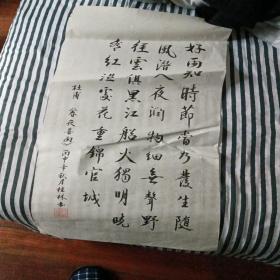 好雨知時節當乃發生隨
風潛入夜潤物細無聲野
徑雲俱黑江船火獨明曉
看紅濕處花重錦官城
杜甫 春夜喜雨 丙申年秋月桂林书